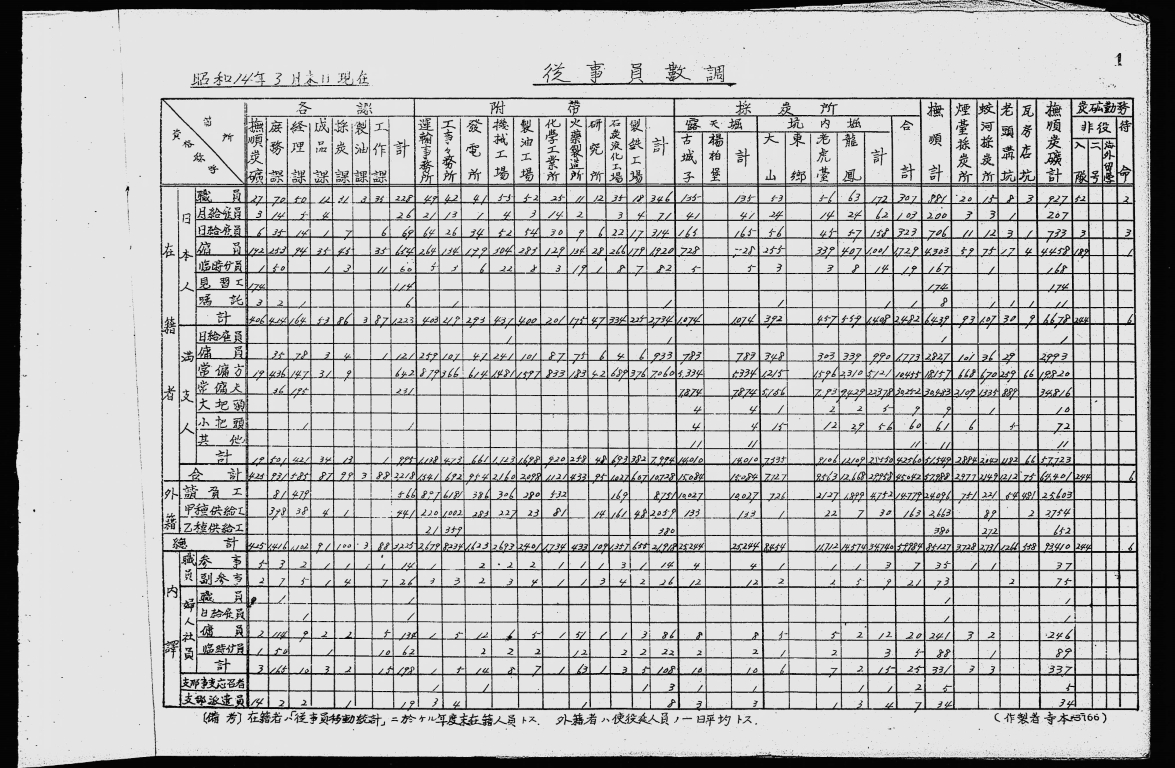 1
昭和14年3月末日現在
従事員数調
各課 附帯 採炭所 撫順計 煙台採炭所 蛟河採炭所 老頭溝坑 瓦房店坑 撫順炭礦計 炭砿勤務
箇所 資格
露天堀 坑内堀 合計 非役 待命
撫順炭礦 庶務課 経理課 成品課 採炭課 製油課 工作課 計 運輸事務所 工事々務所 発電所 機械工場 製油工場 化学工業所 火薬製造所 研究所 石炭液化工場 製鉄工場 計 古城子 楊柏堡 計 大山 東郷 老虎台 龍鳳 計 入隊 二号 海外留学
在籍者 日本人
職員 27 70 50 12 31 3 35 228 49 42 41 55 52 25 11 12 35 18 346 135 135 53 56 63 172 307 881 20 15 8 3 927 52 2
月給雇員 3 14 5 4 26 21 13 1 4 3 14 2 3 4 71 41 41 24 14 24 62 103 200 3 3 1 207
日給雇員 6 35 14 1 7 6 69 64 26 34 52 54 30 9 6 22 17 314 165 165 56 45 57 158 323 706 11 12 3 1 733 3 3
傭員 35 35 654 264 134 179 304 285 129 134 28 266 1920 728 255 339 407 1001 1729 4303 59 75 17 4 4458 189 1
臨時傭員 1 50 1 3 11 60 5 5 6 22 8 3 19 1 8 7 82 5 5 3 3 8 14 19 167 1 168
見習工 174 174 174
嘱託 3 2 1 6 1 1 1 1 8 1 1 1 11
計 406 414 164 53 86 3 87 1223 403 219 293 431 400 201 175 47 334 225 2734 1074 1074 392 457 559 1408 2482 6439 93 107 30 9 6678 244 6
満支人
日給雇員 1 1 1 1
傭員 35 78 3 4 1 121 259 101 41 241 101 87 75 6 4 6 933 783 783 348 303 339 990 1773 2827 101 36 29 2993
常傭方 19 436 147 31 9 642 879 366 614 1481 1597 833 183 42 689 376 7060 5334 5334 1215 1596 2310 5121 10455 18157 668 670 259 66 19820
常傭夫 36 195 231 7874 7874 5156 9429 22378 30252 30483 2109 1335 889 34816
大把頭 4 4 1 2 2 5 9 9 1 10
小把頭 1 1 4 4 15 12 29 56 60 61 6 5 72
其他 11 11 11 11 11
計 19 501 421 34 13 1 995 1138 473 661 1723 1698 920 258 48 693 382 7994 14010 14010 7535 9106 12109 28550 42560 51549 2884 2042 1182 66 57723
合計 425 931 585 87 99 3 88 2218 1541 692 954 2160 2098 1121 433 95 1027 607 10728 15084 15084 7927 9563 12668 29958 45042 57988 2977 2149 1212 75 64401 244 6
外籍
請負工 81 479 566 897 6181 386 306 280 532 169 8751 10027 10027 726 2127 1899 4752 14779 24096 751 221 54 481 25603
甲種供給工 398 38 4 1 441 220 1002 283 227 23 81 14 161 48 2059 133 133 1 22 7 30 163 2663 89 2 2754
乙種供給工 21 359 380 380 272 652
総計 425 1416 1102 91 100 3 88 3225 2679 8234 1623 2693 2401 1734 433 109 1357 655 21918 25244 25244 8454 11712 14574 34740 59984 85127 3728 2731 1266 558 93410 244 6
内訳
職員
参事 5 3 2 1 1 1 1 14 1 2 2 2 1 1 1 3 1 14 4 4 1 1 1 3 7 35 1 1 37
副参事 2 7 5 1 4 7 26 3 3 2 3 4 1 1 3 4 2 26 12 12 2 2 5 9 21 73 2 75
婦人社員
職員 1 1 1 1
日給雇員 1 1 1 1
傭員 2 114 9 2 2 5 134 1 5 12 6 5 1 51 1 1 3 86 8 8 5 5 2 12 20 241 3 2 246
臨時傭員 1 50 1 10 62 2 2 2 12 2 2 22 2 2 1 2 3 5 88 1 89
計 3 165 10 3 2 15 198 1 5 14 8 7 1 63 1 3 5 108 10 10 6 7 2 15 25 331 3 3 337
支那事変応召者 1 1 1 3 1 1 1 2 5 5
支那派遣員 14 2 2 1 19 3 4 1 8 3 3 1 3 4 7 34 34
(備考) 在籍者ハ「従事員移動統計」ニ於ケル年度末在籍人員トス. 外籍者ハ使役延人員ノ一日平均トス.
(作製者 寺本